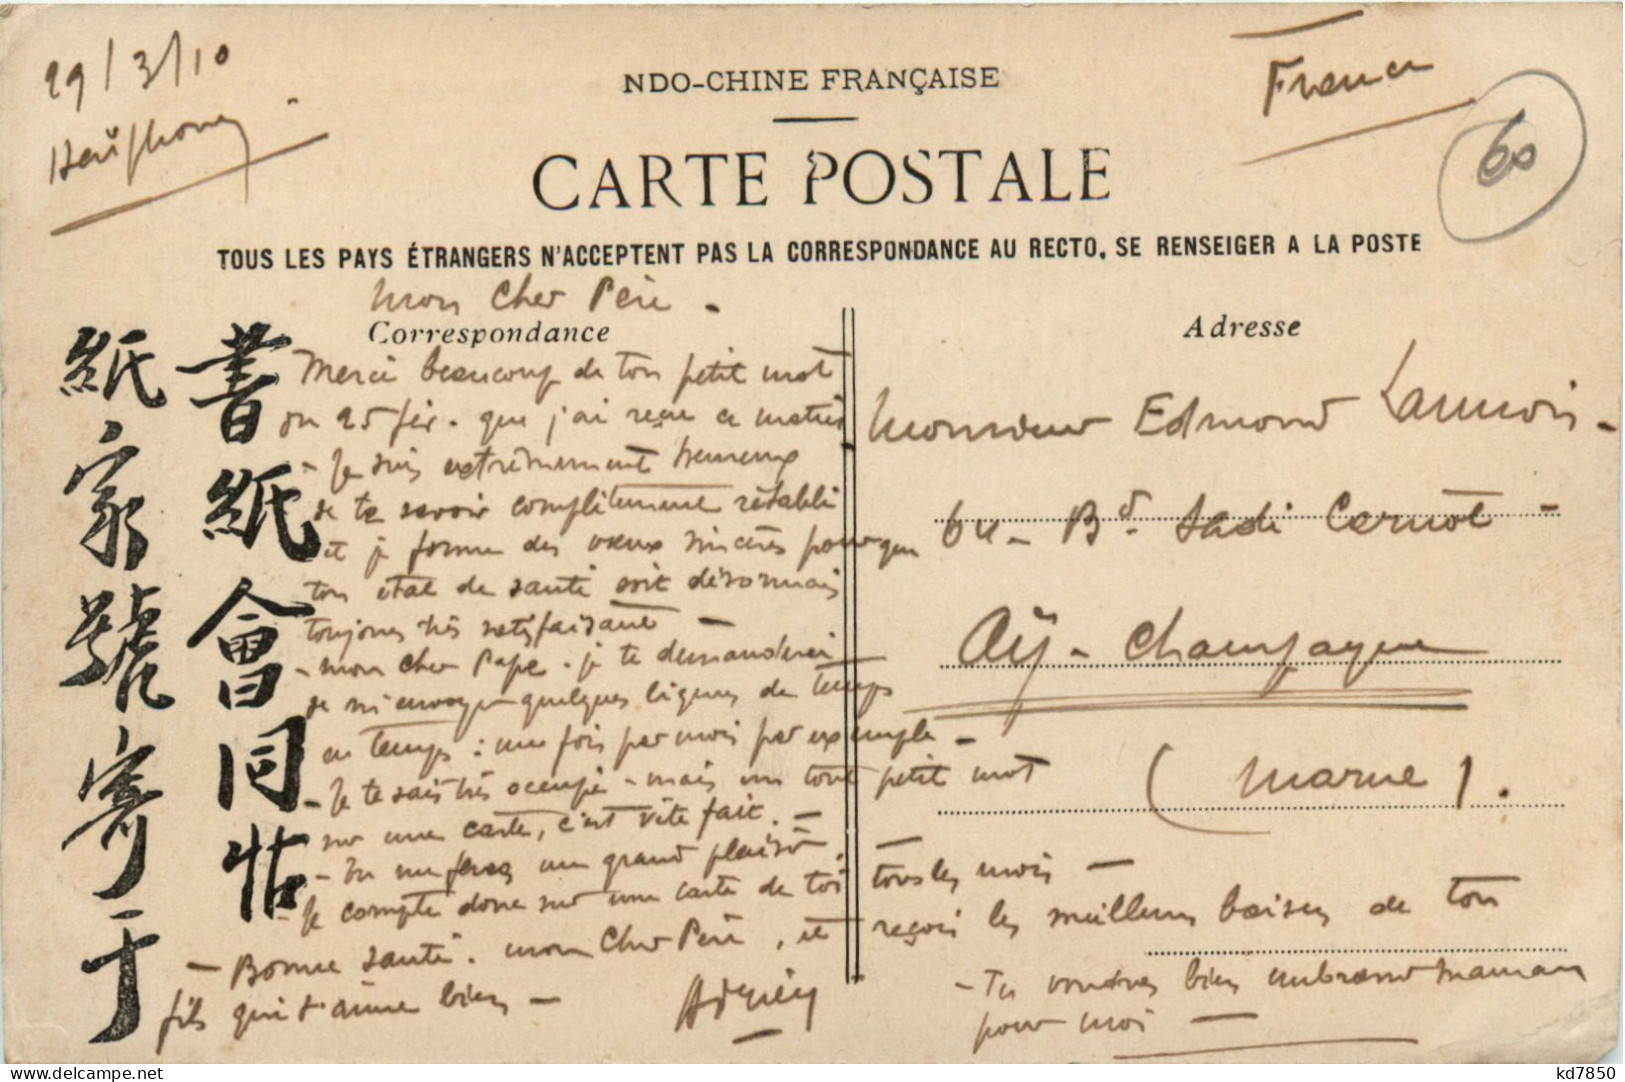 29/3/10
Haïphong
France
60
NDO-CHINE FRANÇAISE
CARTE POSTALE
TOUS LES PAYS ÉTRANGERS N'ACCEPTENT PAS LA CORRESPONDANCE AU RECTO, SE RENSEIGER A LA POSTE
Mon Cher Père -
Correspondance
Merci beaucoup de ton petit mot
du 25 fév. que j'ai reçu ce matin
- Je suis extrêmement heureux
de te savoir complètement rétabli
et je forme des vœux sincères pour que
ton état de santé soit désormais
toujours très satisfaisant -
- mon cher Papa. je te demanderai
de m'envoyer quelques lignes de temps
en temps : une fois par mois par exemple -
- Je te sais très occupé - mais un tout petit mot
sur une carte, c'est vite fait. -
- Tu me feras un grand plaisir.
- Je compte donc sur une carte de toi tous les mois -
- Bonne santé. mon Cher Père, et reçois les meilleurs baisers de ton
fils qui t'aime bien -
- Tu voudras bien embrasser maman
pour moi -
書紙會同帖
紙家號寄于
Adresse
Monsieur Edmond Launois -
64 - Bd Sadi Carnot -
Aÿ - Champagne
(Marne).
kd7850